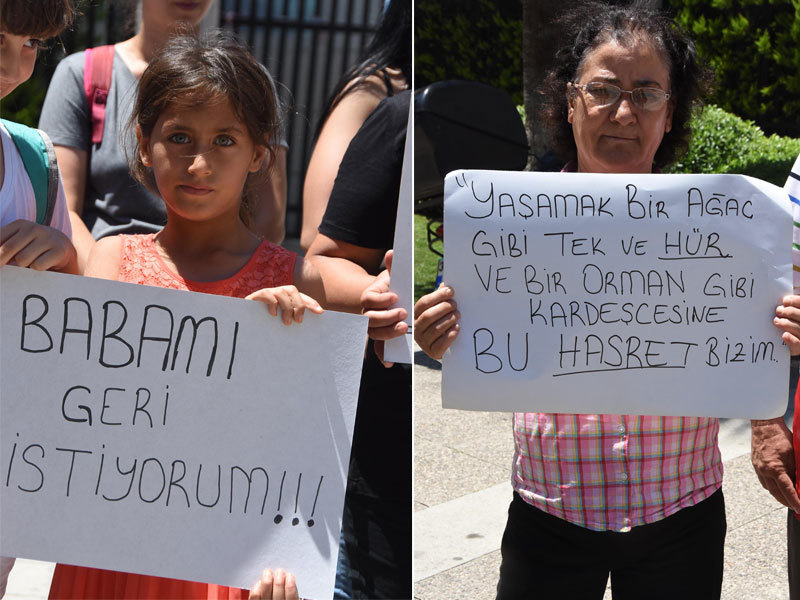 BABAMI
GERİ
İSTİYORUM!!!
"YAŞAMAK BİR AĞAÇ
GİBİ TEK VE HÜR
VE BİR ORMAN GİBİ
KARDEŞÇESİNE
BU HASRET BİZİM."